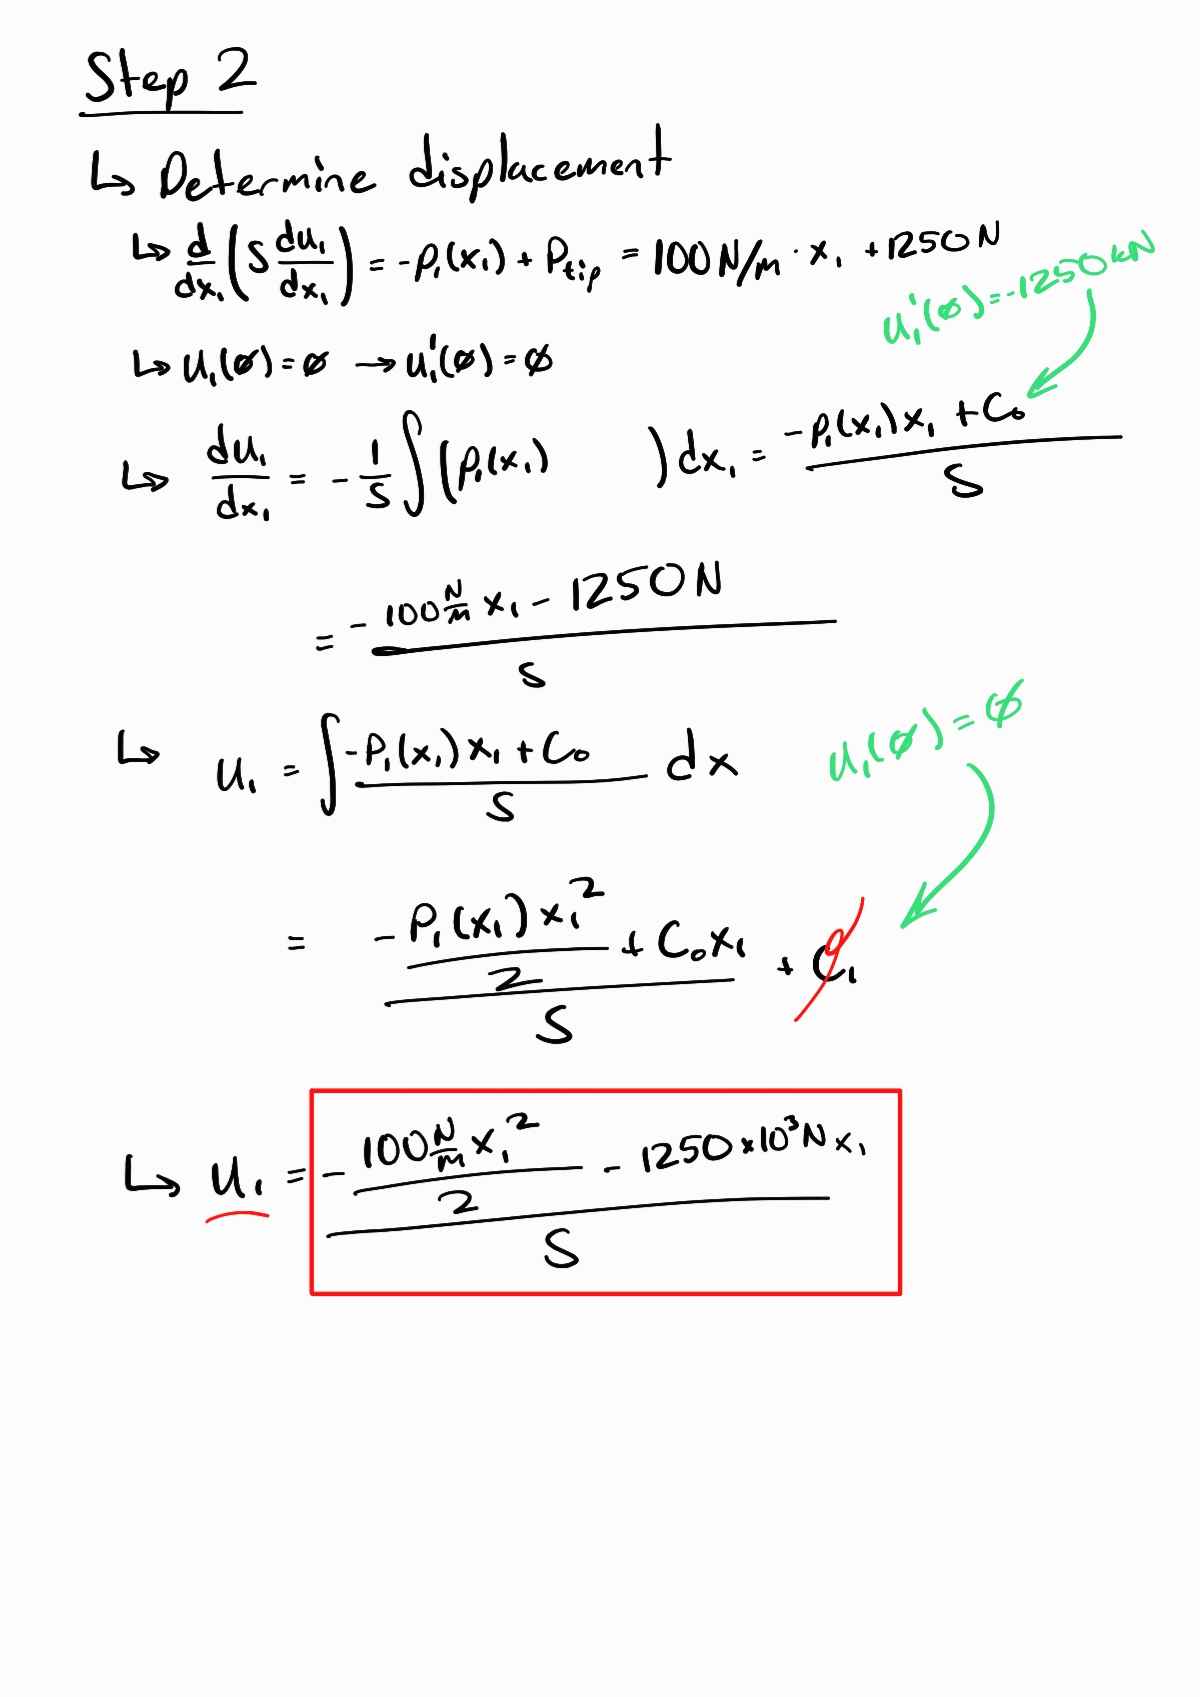 Step 2
↳ Determine displacement
↳ d/dx₁ (S du₁/dx₁) = -p₁(x₁) + P_tip = 100 N/m · x₁ + 1250 N
u₁'(∅) = -1250 kN
↳ u₁(∅) = ∅ → u₁'(∅) = ∅
↳ du₁/dx₁ = - 1/S ∫ (p₁(x₁) ) dx₁ = (-p₁(x₁) x₁ + C₀)/S
= (-100 N/m x₁ - 1250 N)/S
u₁(∅) = ∅
↳ u₁ = ∫ (-P₁(x₁) x₁ + C₀)/S dx
= (-P₁(x₁) x₁²/2 + C₀x₁)/S + C₁ 0
↳ u₁ = (- 100 N/m x₁²/2 - 1250 × 10³ N x₁)/S